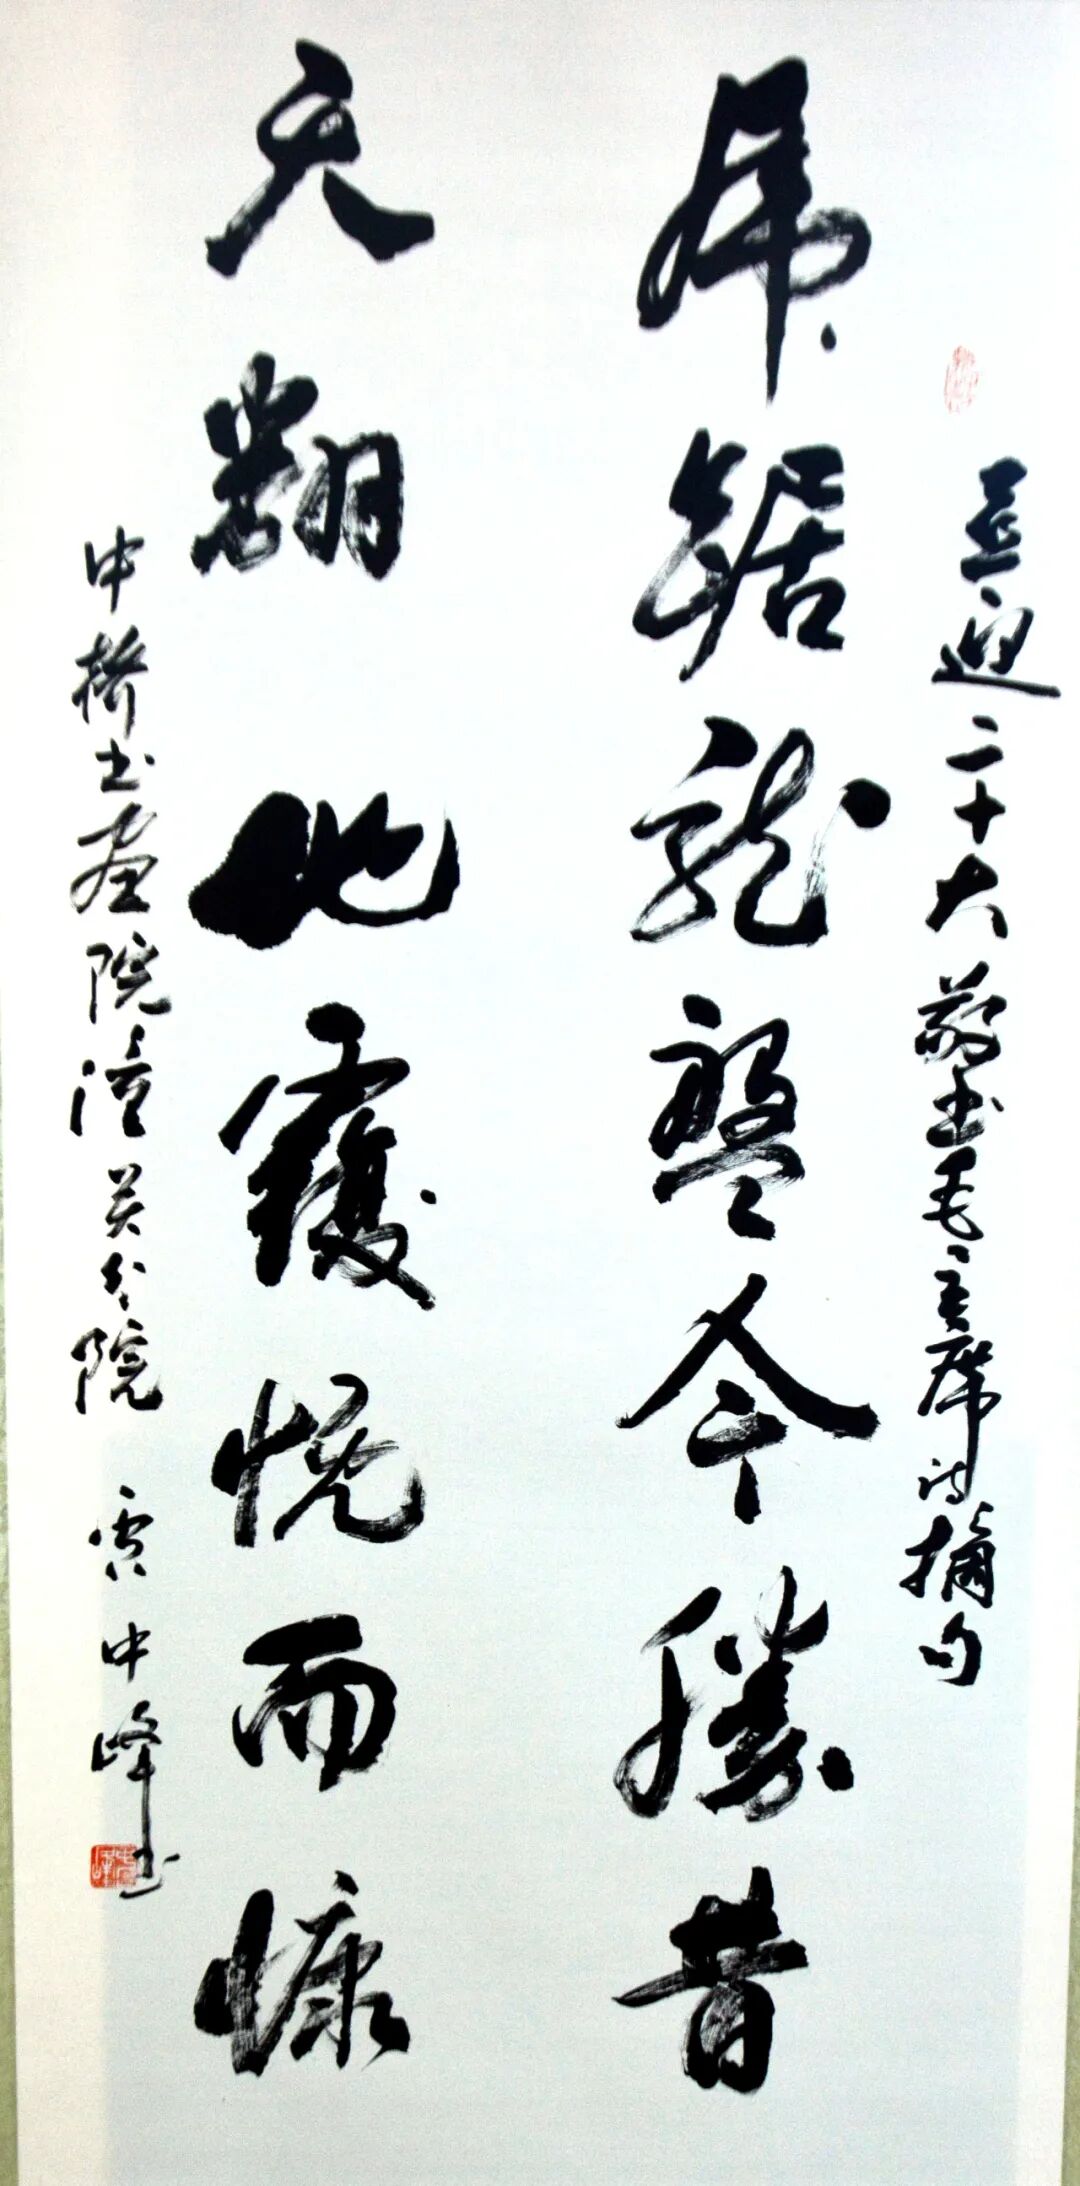 喜迎二十大敬书毛主席诗摘句
虎踞龙盘今勝昔
天翻地覆慨而慷
中桥书画院潼关分院 中峰书